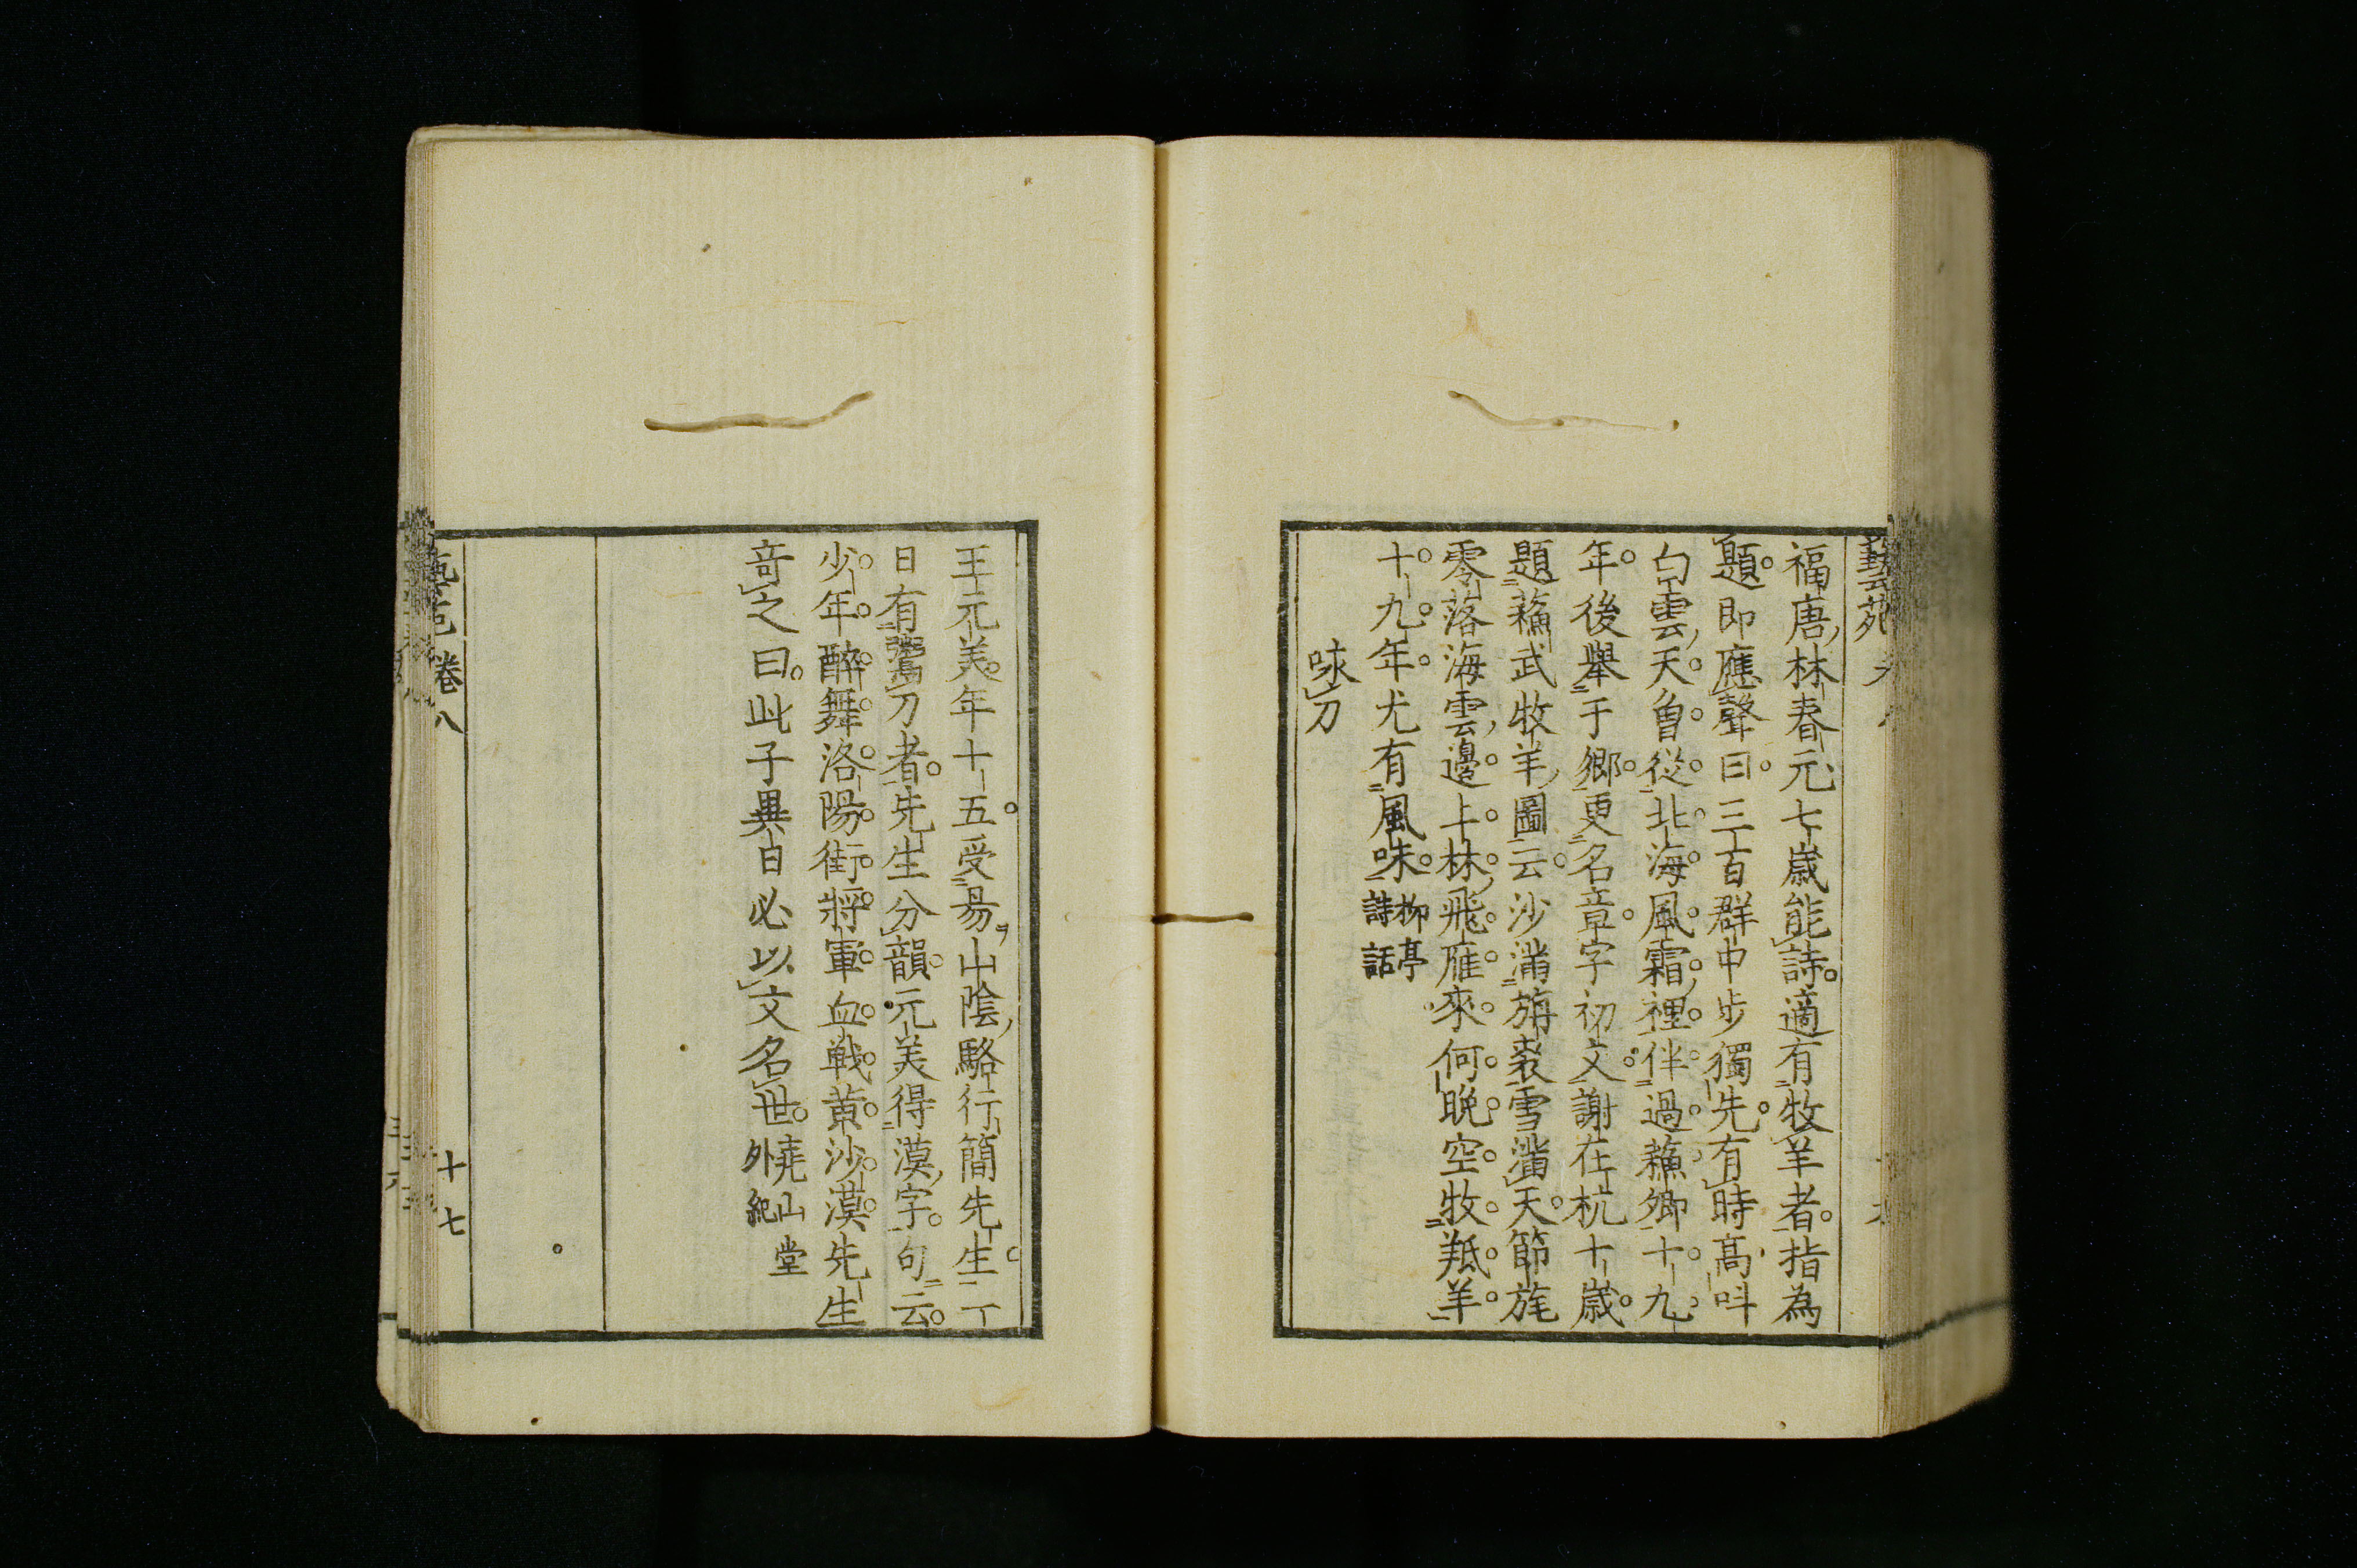 藝苑
福唐林春元七歳能詩適有牧羊者指為
題即應聲曰三百群中步獨先有時高呌
白雲天曽從北海風霜裡伴過蘓卿十九
年後舉于郷更名章字初文謝在杭十歳
題蘓武牧羊圖云沙満旃裘雪満天節旄
零落海雲邊上林飛雁來何晩空牧羝羊
十九年尤有風味柳亭
詩話
咏刀
王元美年十五受昜山陰駱行簡先生一
日有鬻刀者先生分韻元美得漠字句云
少年醉舞洛陽街將軍血戦黄沙漠先生
竒之曰此子異日必以文名世堯山堂
外紀
卷八
十七